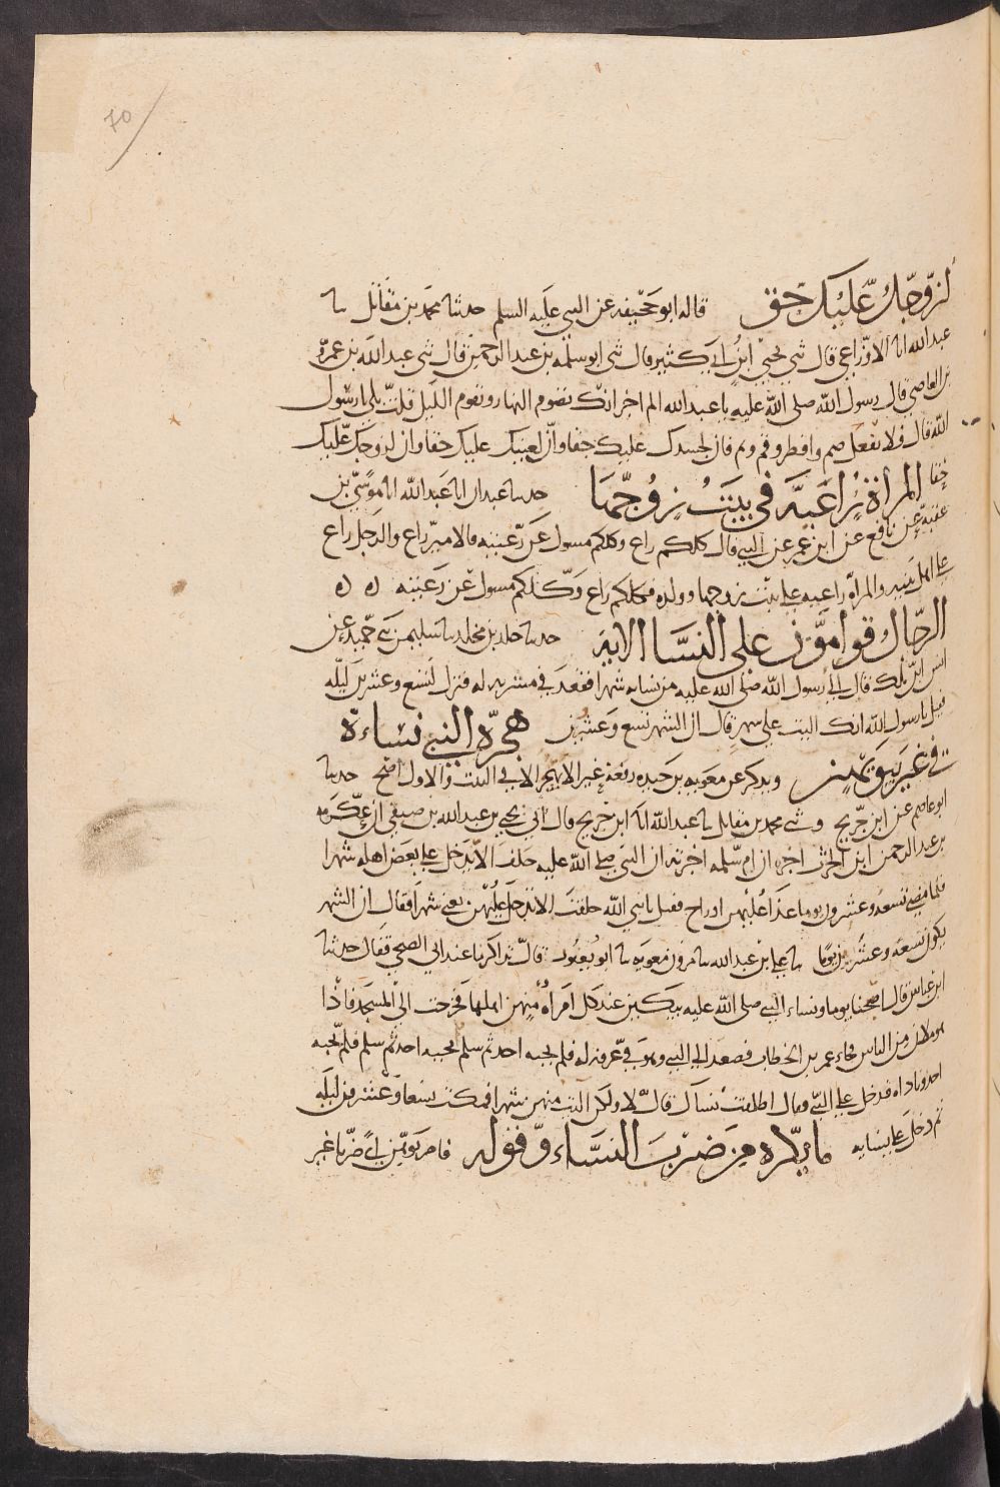 70
لزوجك عليك حق قاله ابو جحيفه عن النبي عليه السلم حدثنا محمد بن مقاتل نا
عبد الله انا الاوزاعي قال ثني يحيى ابن ابي كثير قال ثني ابو سلمه بن عبد الرحمن قال ثني عبد الله بن عمرو
بن العاصي قال رسول الله صلى الله عليه يا عبد الله الم اخبر انك تصوم النهار وتقوم الليل قلت بلى يا رسول
الله قال فلا تفعل صم وافطر وقم ونم فان لجسدك عليك حقا وان لعينيك عليك حقا وان لزوجك عليك
حقا المراة راعية في بيت زوجها حدثنا عبدان انا عبد الله انا موسى بن
عقبة عن نافع عن ابن عمر عن النبي قال كلكم راع وكلكم مسول عن رعيته فالامير راع والرجل راع
على اهل بيته والمراة راعيه على بيت زوجها وولده فكلكم راع وكلكم مسول عن رعيته ه ه
الرجال قوامون على النسا الاية حدثنا خلد بن مخلد نا سليمن ثني حميد عن
انس ابن ملك قال الى رسول الله صلى الله عليه من نسايه شهرا فقعد في مشربه له فنزل لتسع وعشرين ليله
فقيل يا رسول الله انك اليت على شهر قال ان الشهر تسع وعشرين هجرة النبي نساءه
في غير بيوتهن ويذكر عن معويه بن حيده رفعه غير الا يهجر الا في البيت والاول اصح حدثنا
ابو عاصم عن ابن جريج وثني محمد بن مقاتل نا عبد الله انا ابن جريج قال اني يحيى بن عبد الله بن صيفي ان عكرمه
بن عبد الرحمن ابن الحرث اخبره ان ام سلمه اخبرته ان النبي صلى الله عليه حلف الا يدخل على بعض اهله شهرا
فلما مضى تسعه وعشرون يوما غدا عليهن او راح فقيل يا نبي الله حلفت الا تدخل عليهن يعني شهرا فقال ان الشهر
يكون تسعه وعشرين يوما نا علي بن عبد الله نا مروان بن معويه نا ابو يعفور قال تذاكرنا عند ابي الضحى فقال حدثنا
ابن عباس قال اصبحنا يوما ونساء النبي صلى الله عليه يبكين عند كل امراة منهن اهلها فخرجت الى المسجد فاذا
هو ملان من الناس فجاء عمر بن الخطاب فصعد الى النبي وهو في غرفه له فلم يجبه احد ثم سلم فلم يجبه احد ثم سلم فلم يجبه
احد فناداه فدخل على النبي فقال اطلقت نساك قال لا ولكن اليت منهن شهرا فمكث تسعا وعشرين ليله
ثم دخل على نسايه ما يكره من ضرب النساء وقوله فاضربوهن اي ضربا غير